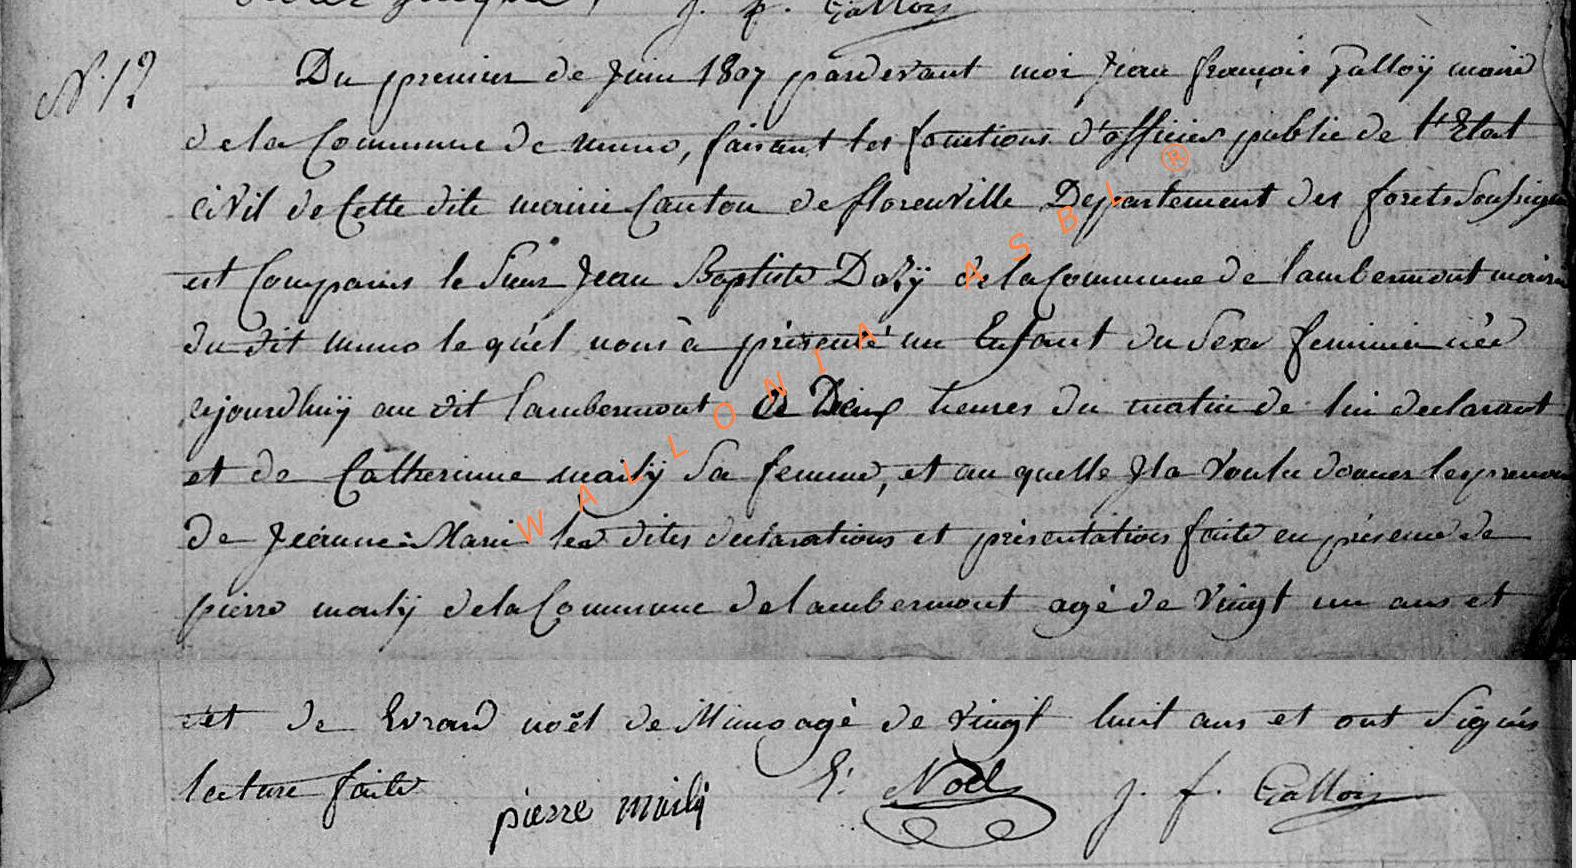 J. f. Gallois
N.° 12
Du premier de Juin 1807 pardevant moi Jean françois Galloÿ maire
de la Commune de muno, faisant les fonctions d'officier public de l'Etat
civil de Cette dite mairie Canton de florenville Departement des forets Soussigné
est Comparus le Sieur Jean Baptiste Dazÿ de la Commune de lambermont mairie
du dit muno le quel nous à présenté un Enfant du Sexe feminin née
ajourdhuÿ au dit lambermont de Deux heures du matin de lui declarant
et de Catherinne mailÿ Sa femme, et au quelle Jl a voulu donner les prenoms
de Jeanne: Marie les dites declarations et présentations faite en présence de
pierre mailÿ de la Commune de lambermont agé de vingt un ans et
et de Evrard noël de Muno agé de vingt huit ans et ont Signés
lecture faite pierre mailÿ E: Noël J. f. Gallois
WALLONIA ASBL ®